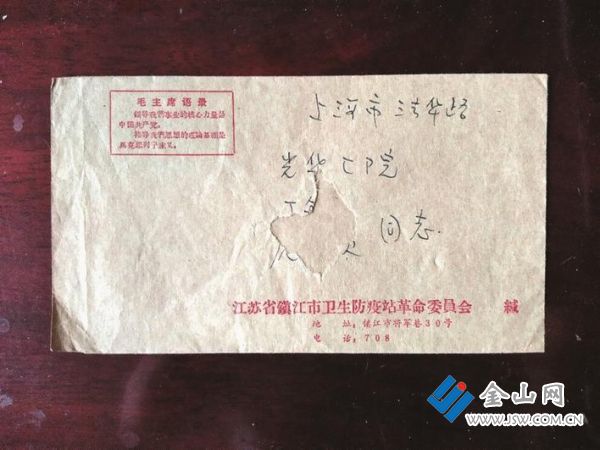 毛主席语录
领导我们事业的核心力量是
中国共产党。
指导我们思想的理论基础是
马克思列宁主义。
上海市
光华
同志.
江苏省镇江市卫生防疫站革命委员会 缄
地 址：镇江市将军巷30号
电 话：708
金山网
www.JSW.COM.CN